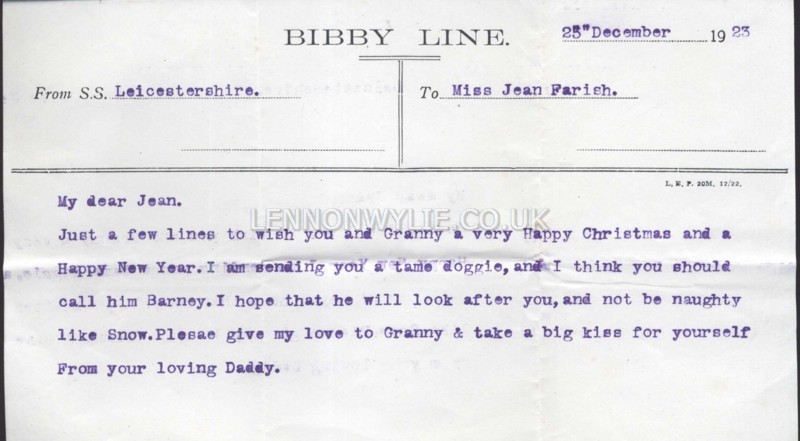 BIBBY LINE.
25" December 1923
From S.S. Leicestershire.
To Miss Jean Farish.
L. E. P. 20M. 12/22.
My dear Jean.
LENNONWYLIE.CO.UK
Just a few lines to wish you and Granny a very Happy Christmas and a
Happy New Year.I am sending you a tame doggie,and I think you should
call him Barney.I hope that he will look after you,and not be naughty
like Snow.Plesae give my love to Granny & take a big kiss for yourself
From your loving Daddy.